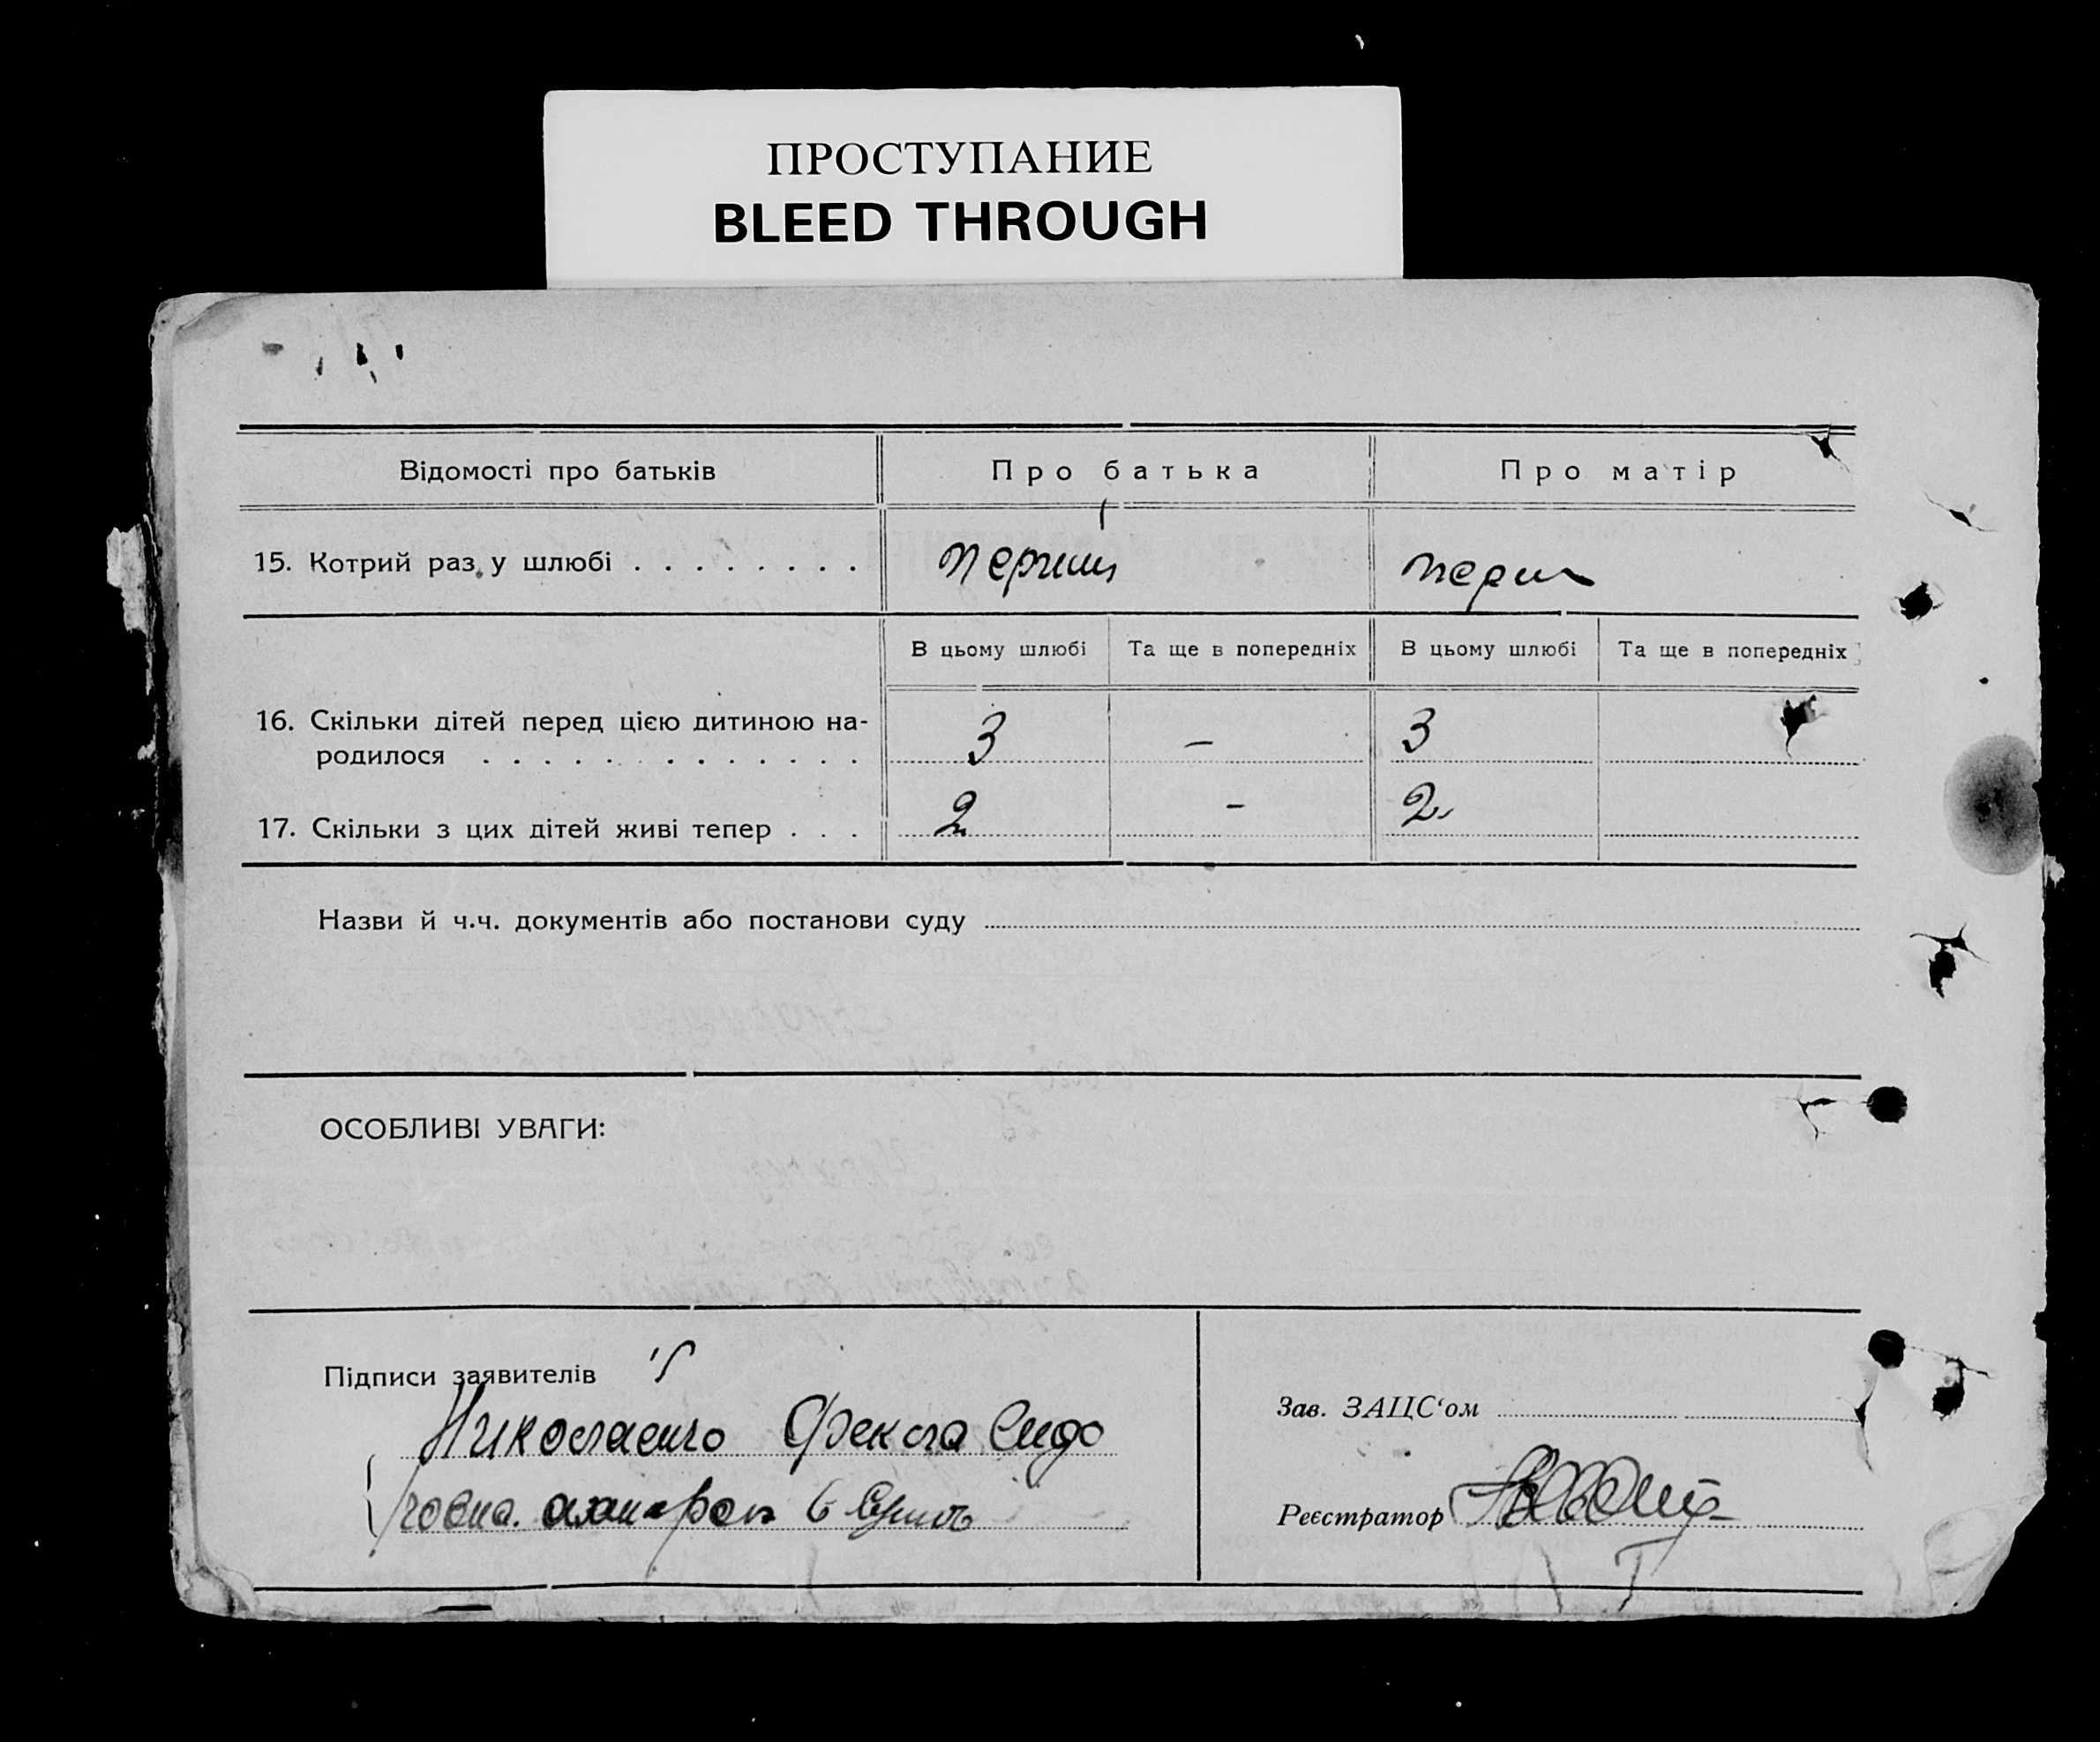 ПРОСТУПАНИЕ
BLEED THROUGH
Відомості про батьків Про батька Про матір
15. Котрий раз у шлюбі . . . . . . . . перший перш
В цьому шлюбі Та ще в попередніх В цьому шлюбі Та ще в попередніх
16. Скільки дітей перед цією дитиною на-
родилося . . . . . . . . . . . . . 3 – 3
17. Скільки з цих дітей живі тепер . . . 2 – 2
Назви й ч.ч. документів або постанови суду
ОСОБЛИВІ УВАГИ:
Підписи заявителів
Николаенко Фекла Сидо
Зав. ЗАЦС‘ом
ровна.
Реєстратор